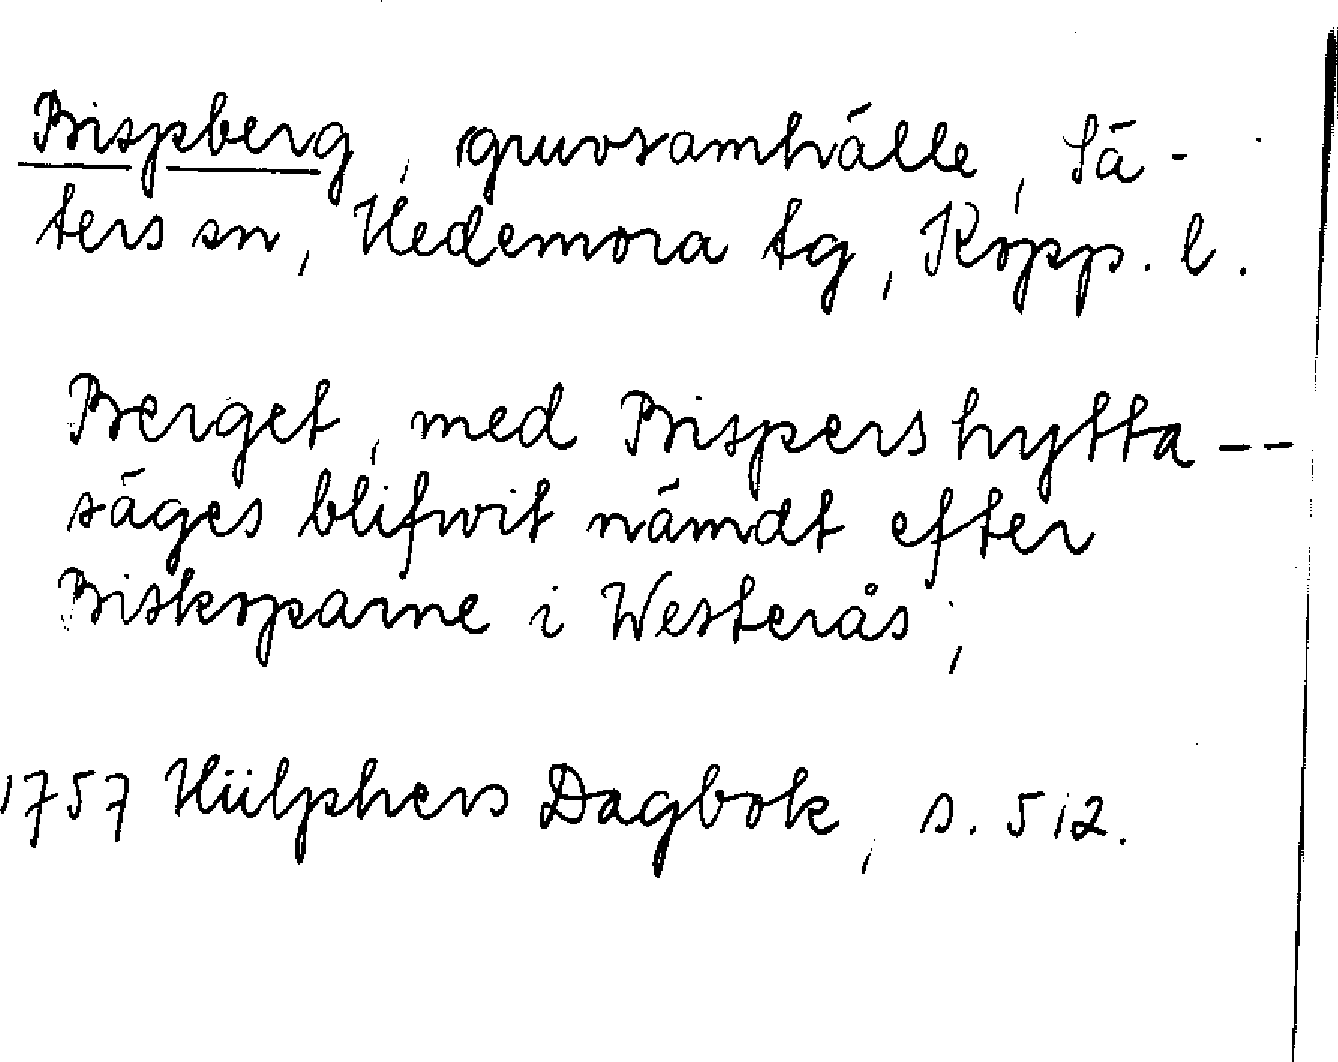 Bispberg, gruvsamhälle, Sä-
ters sn, Hedemora tg, Kopp. l.
Berget, med Bispers hytta --
säges blifwit nämdt efter
Biskoparne i Westerås;
1757 Hülphers Dagbok, s. 512.